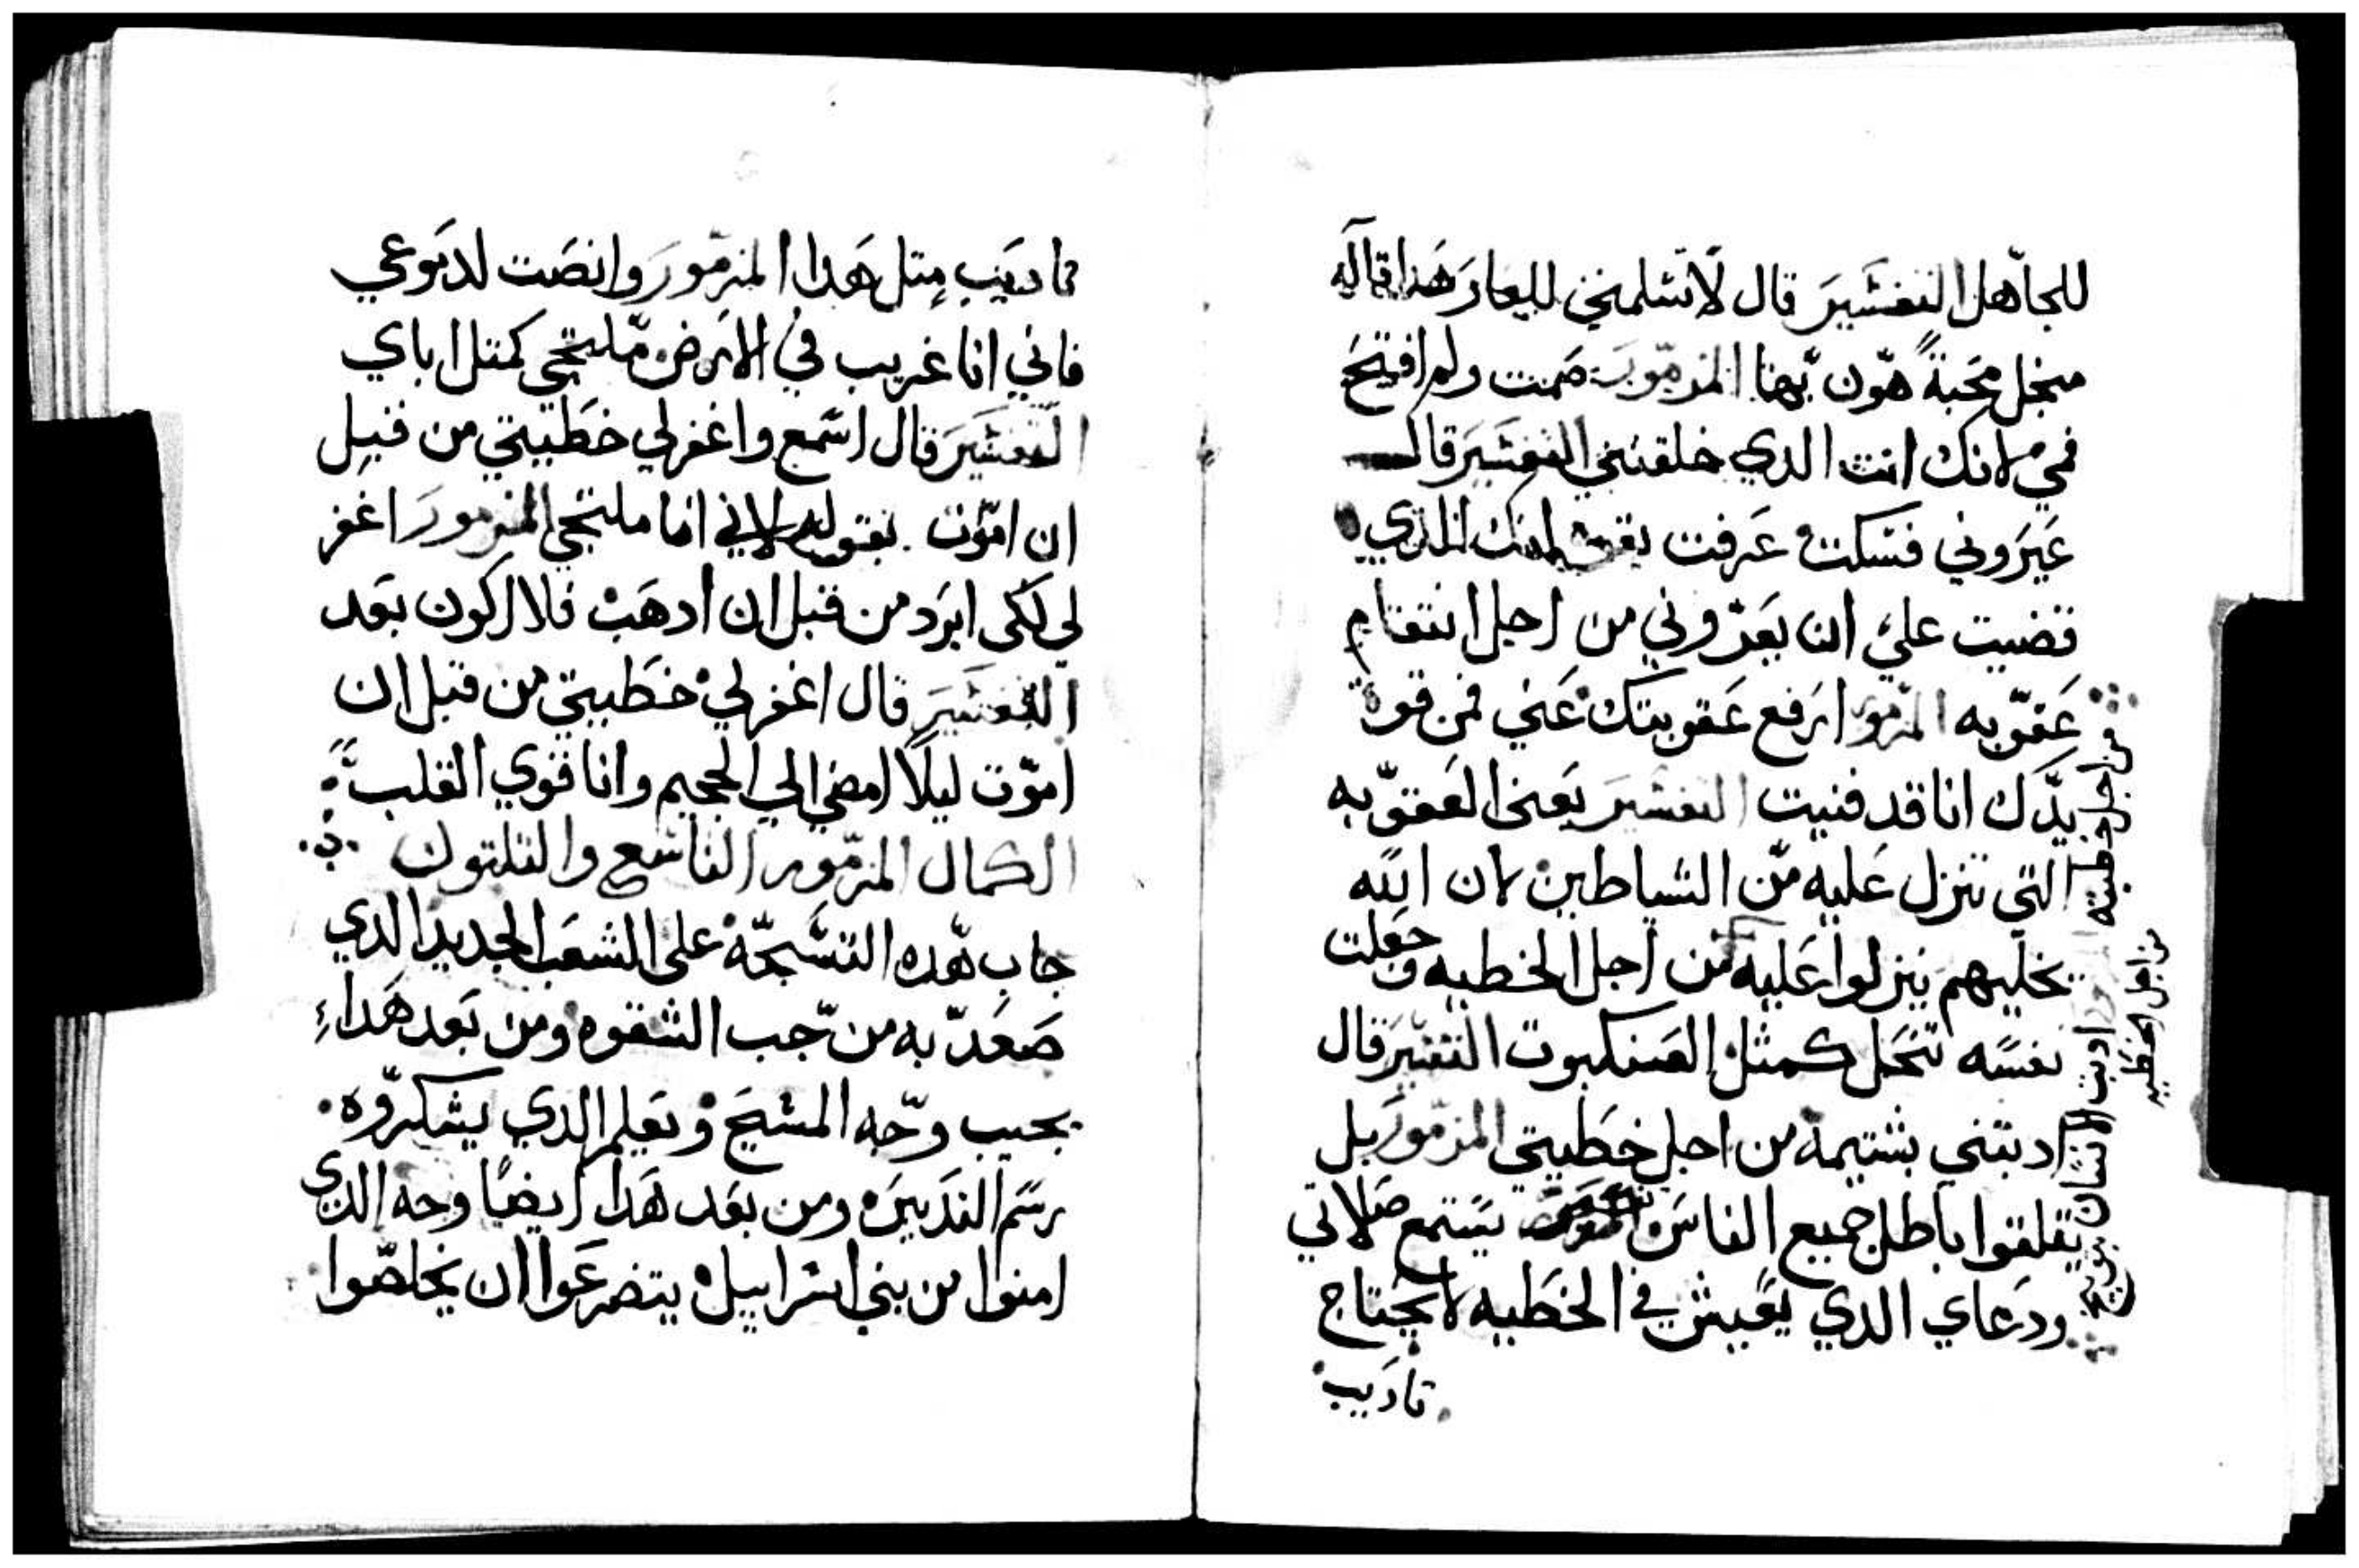 للجاهل التفسير قال لا تسلمني للعار هدا قاله
منجل محبة هون بهنا المزمور صمت ولم افتح
فمي لانك انت الدي خلقتني التفسير قال
عيروني فسكت عرفت بقلبي انك الدي
قضيت علي ان يعيروني من اجل انتقام
عقوبه المزمور ارفع عقوبتك عني فمن قوة
يدك انا قد فنيت التفسير يعني العقوبه
التي تنزل عليه من الشياطين لان الله
يخليهم ينزلوا عليه من اجل الخطيه وجعلت
نفسه تنحل كمثل العنكبوت التفسير قال
ادبتني بشتيمة من اجل خطيتي المزمور بل
يقلقوا باطل جميع الناس يستمع صلاتي
ودعاي الدي يعيش في الخطيه لا يحتاج
تاديب
من اجل خطيته ادبت الانسان بتوبيخ
من اجل الخطيه
تاديب متل هدا المزمور وانصت لدموعي
فاني انا غريب في الارض ملتجي كمتل اباي
التفسير قال اسمع واغفر لي خطيتي من قبل
ان اموت لاني انا ملتجي المزمور اغفر
لي لكي ابرد من قبل ان ادهب فلا اكون بعد
التفسير قال اغفر لي خطيتي من قبل ان
اموت ليلا امضي الي الجحيم وانا قوي القلب
الكمال المزمور التاسع والتلتون
جاب هده التسبحة على الشعب الجديد الدي
صعد به من جب الشقوه ومن بعد هدا
يجيب وجه المسيح ويعلم الدي يشكروه
رسم النديره ومن بعد هدا ايضا وجه الدي
امنوا من بني اسراييل يتضرعوا ان يخلصوا